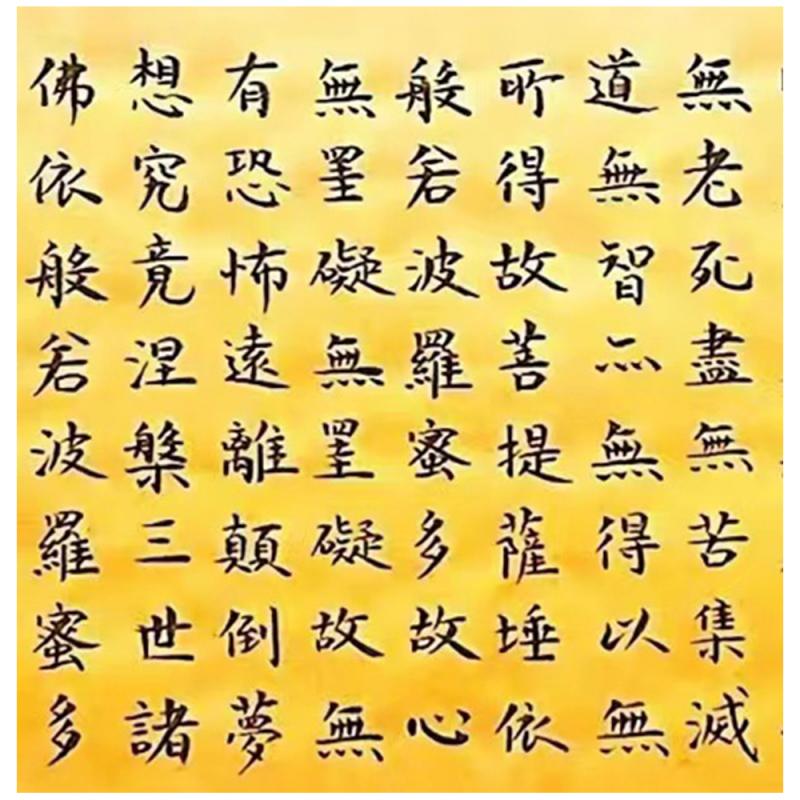 無老死盡無苦集滅
道無智亦無得以無
所得故菩提薩埵依
般若波羅蜜多故心
無罣礙無罣礙故無
有恐怖遠離顛倒夢
想究竟涅槃三世諸
佛依般若波羅蜜多